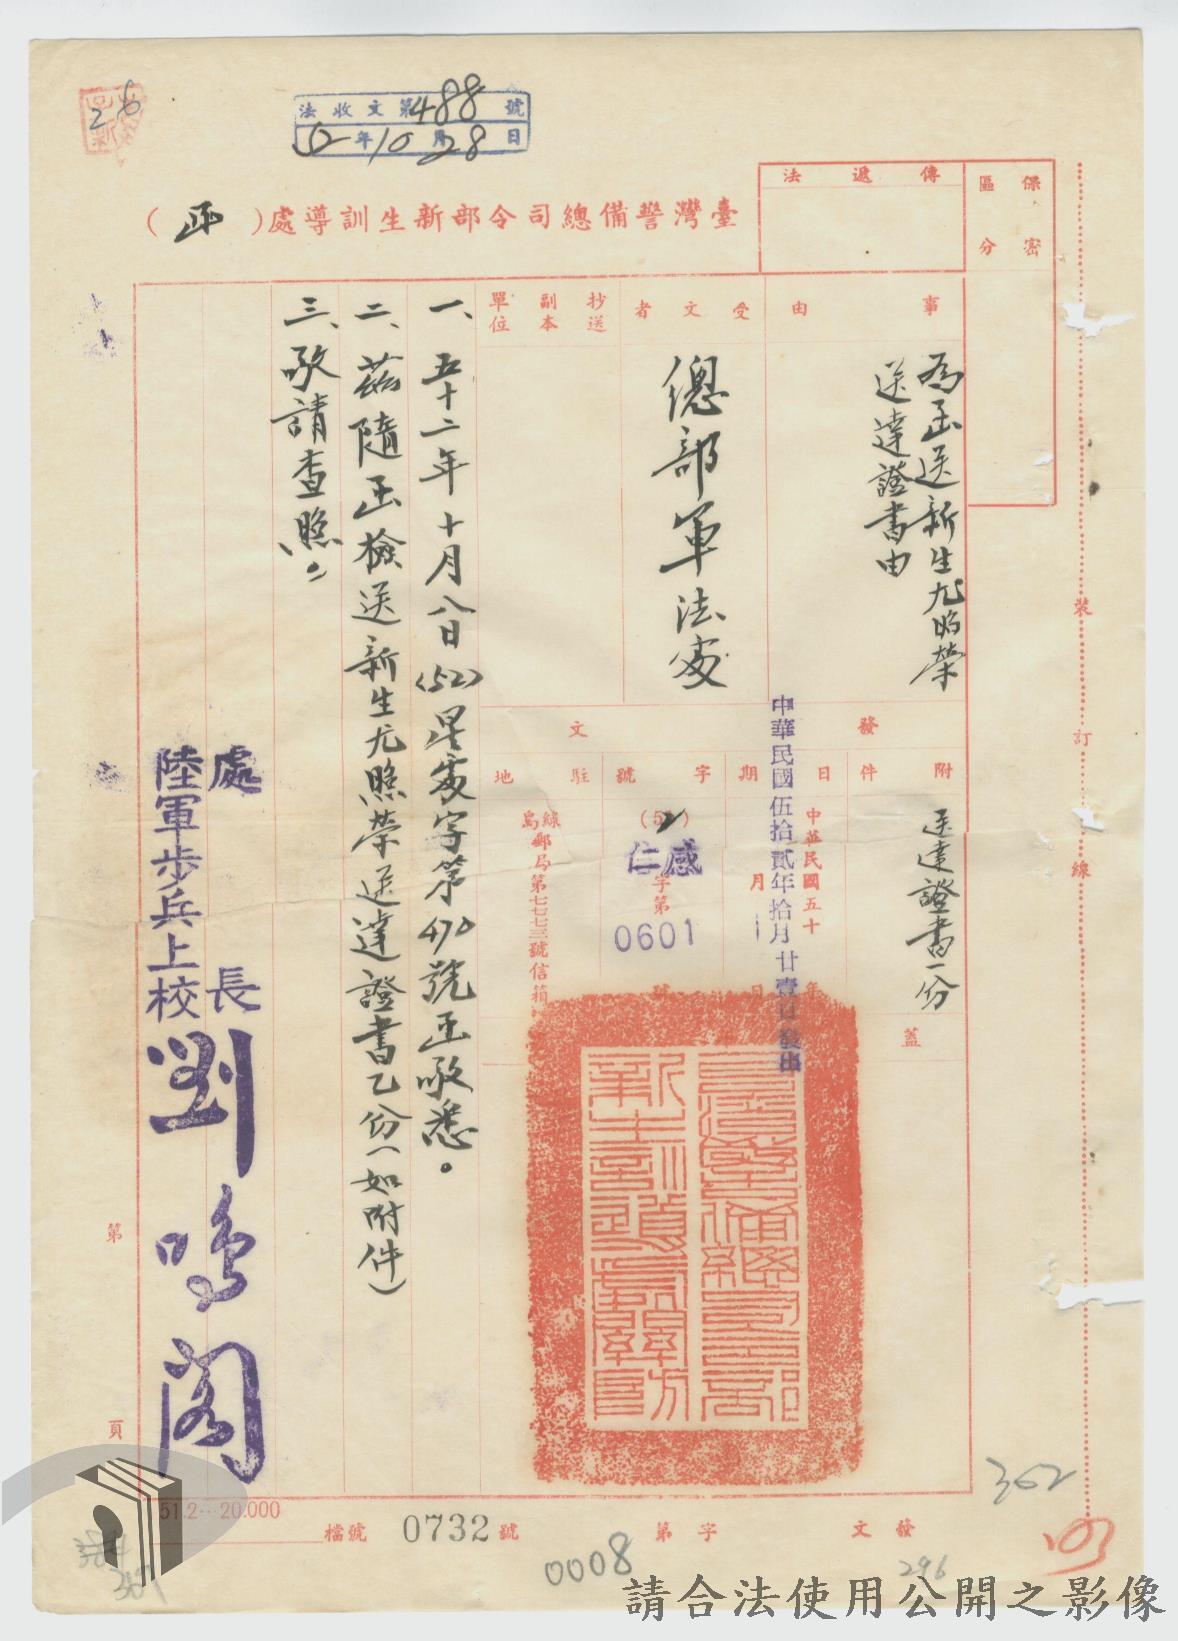 法收文第488號
52年10月28日
26
保密
區分
傳遞法
臺灣警備總司令部新生訓導處(函)
事由
為函送新生尤照榮
送達證書由
受文者
總部軍法處
抄送
副本
單位
發文
附件
送達證書一份
日期
中華民國五十年月日
中華民國伍拾貳年拾月廿壹日發出
字號
(52)
感仁
字第
0601
號
駐地
綠島郵局第七七七三號信箱
蓋
臺灣警備總司令部
新生訓導處關防
一、五十二年十月八日(52)星處字第470號函敬悉。
二、茲隨函檢送新生尤照榮送達證書乙份(如附件)
三、敬請查照。
處長
陸軍步兵上校劉鳴閣
裝
訂
線
第
頁
51.2…20.000
檔號 0732號
發文
字第
0008
362
103
296
請合法使用公開之影像